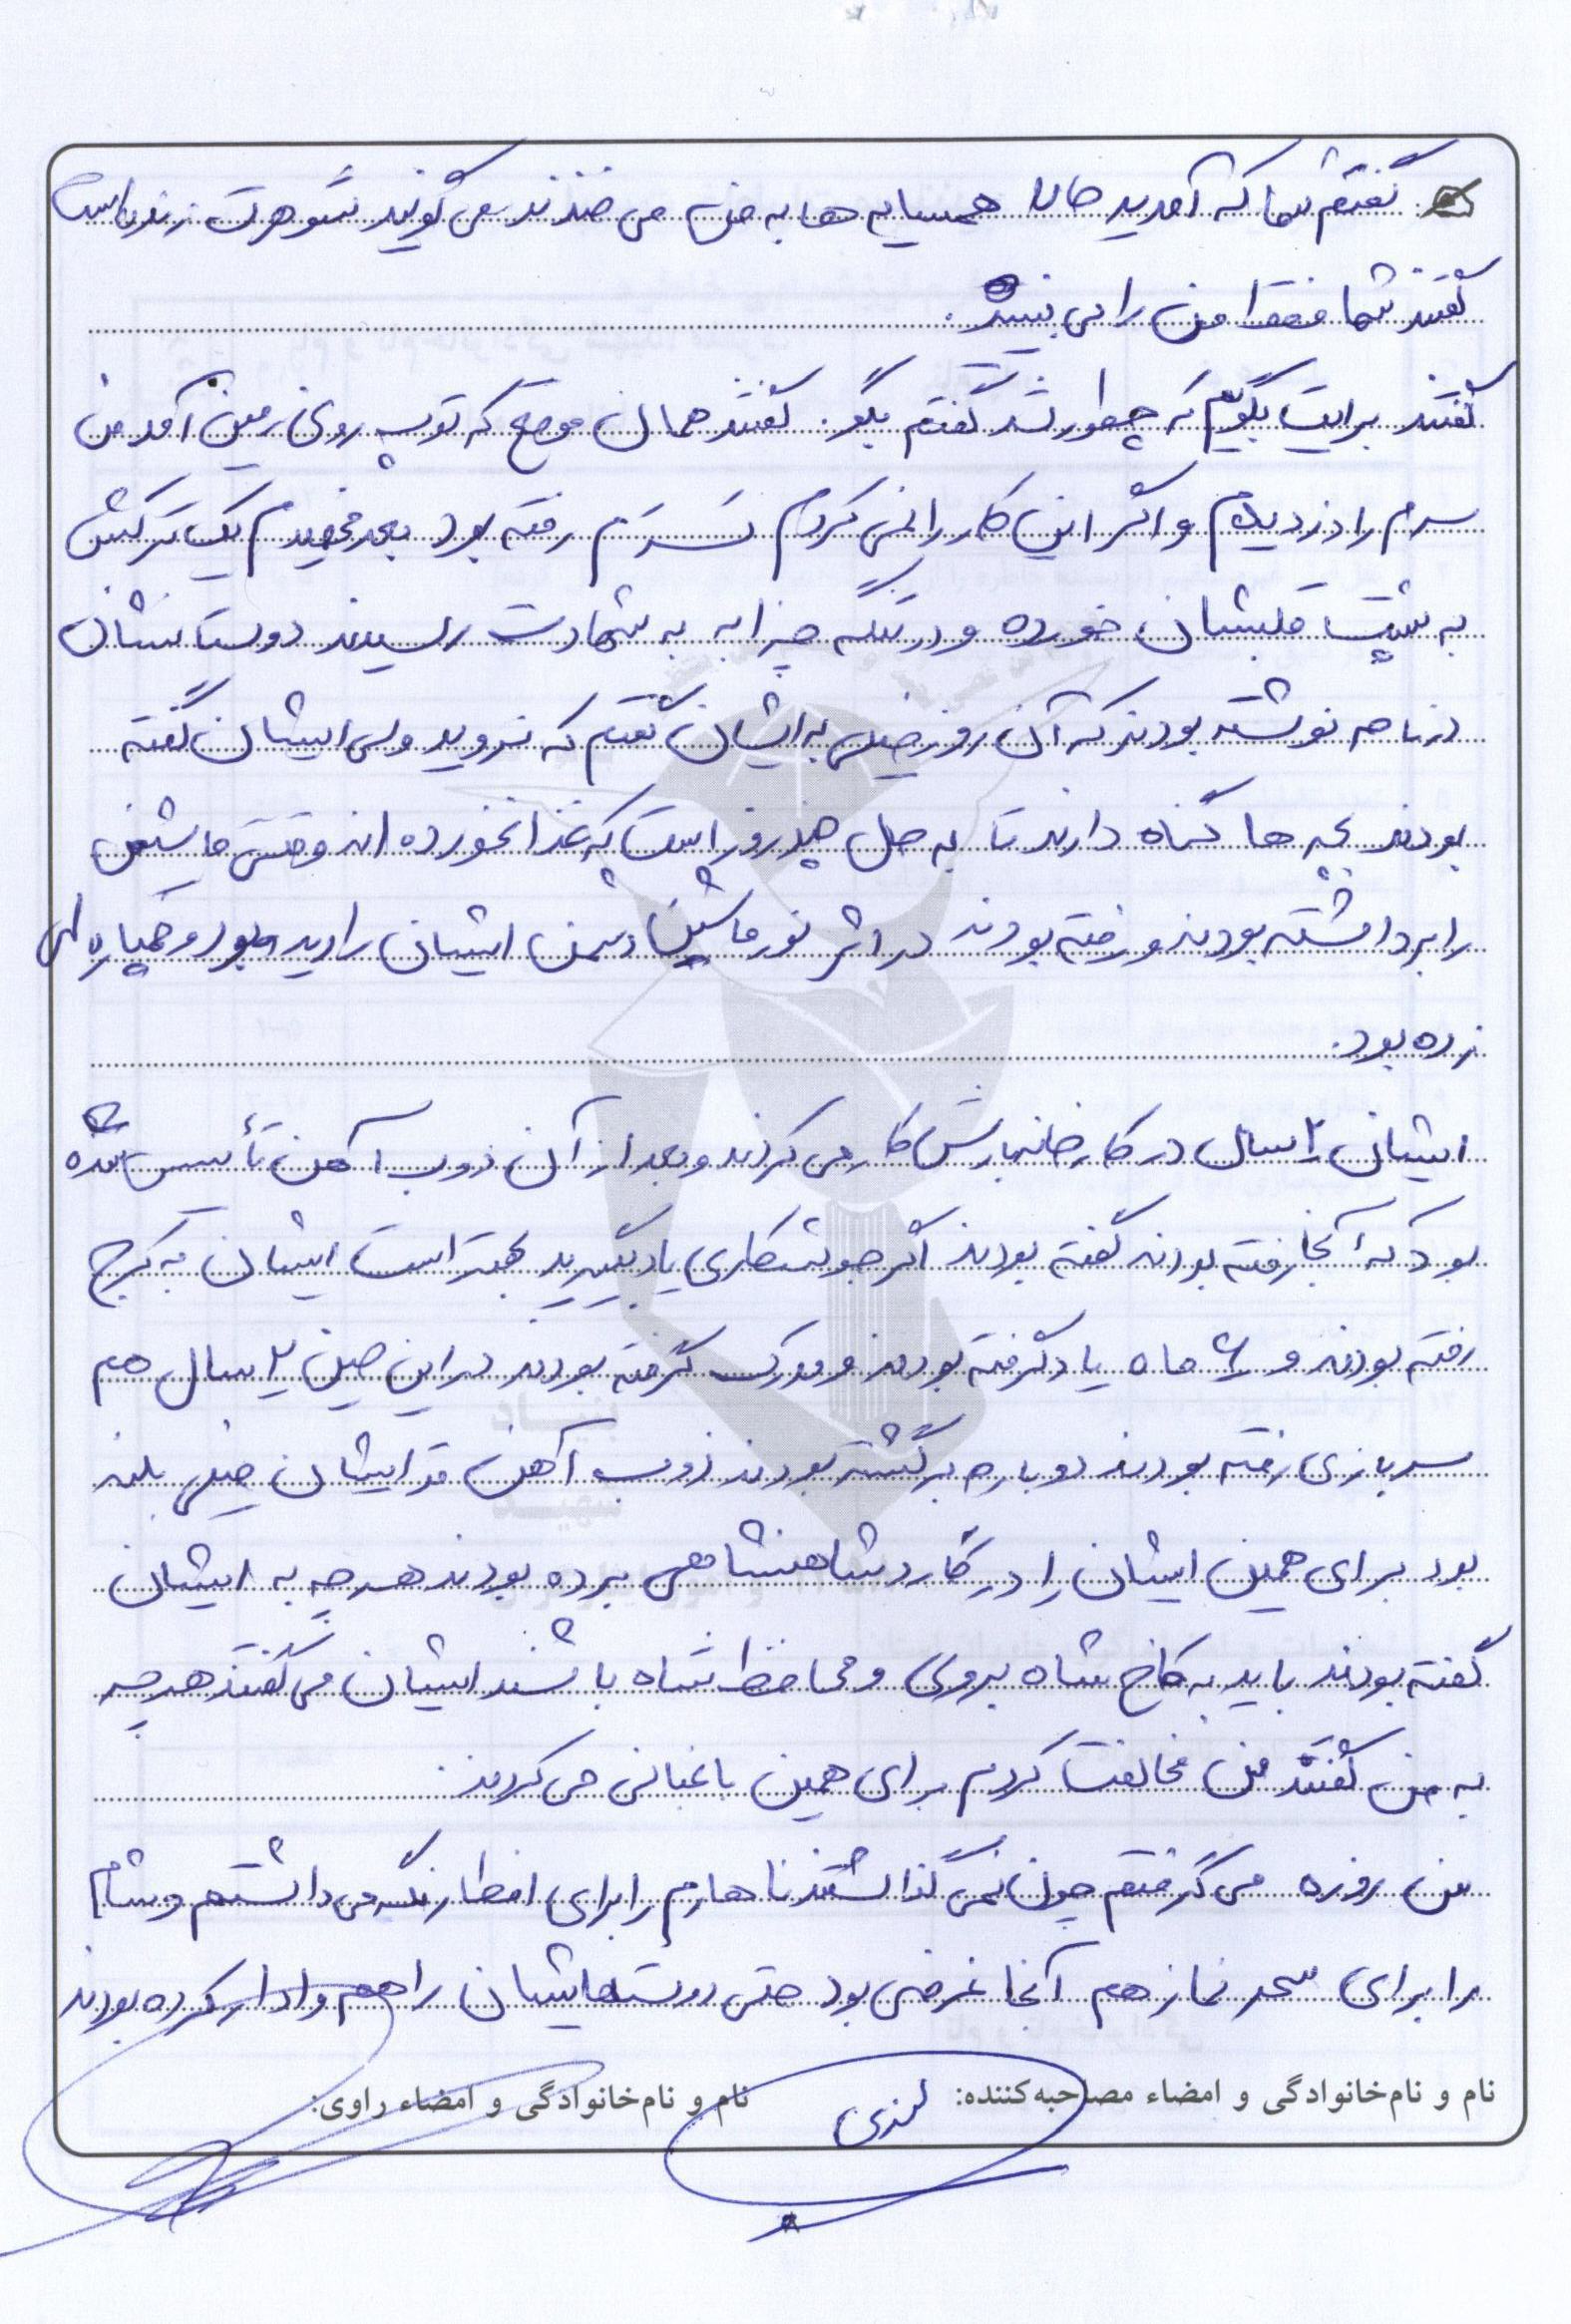 گفتم شما که آمدید حالا همسایه ها به من می خندند می گویند شوهرت زنده است
گفتند شما فقط من را می بینید.
گفتند برایت بگویم که چطور شد گفتم بگو. گفتند همان موقع که توپ روی زمین آمد من
سرم را دزدیدم و اگر این کار را نمی کردم سَرَم رفته بود بعد فهمیدم یک ترکش
به پشت قلبشان خورده و در تنگه چزابه به شهادت رسیدند دوستانشان
در نامه نوشته بودند که آن روز خیلی به ایشان گفتم که نروید ولی ایشان گفته
بودند بچه ها گناه دارند تا به حال چند روز است که غذا نخورده اند وقتی ماشین
را برداشته بودند و رفته بودند در اثر نور ماشین دشمن ایشان را دیده بود و خمپاره ای
زده بود.
ایشان ۲ سال در کارخانه بارش کار می کردند و بعد از آن ذوب آهن تأسیس شده
بود که آنجا رفته بودند گفته بودند اگر جوشکاری یاد بگیرید بهتر است ایشان به کرج
رفته بودند و ۶ ماه یاد گرفته بودند و مدرک گرفته بودند در این حین ۲ سال هم
سربازی رفته بودند دوباره برگشته بودند ذوب آهن قد ایشان خیلی بلند
بود برای همین ایشان را در گارد شاهنشاهی برده بودند هر چه به ایشان
گفته بودند باید به کاخ شاه بروی و محافظ شاه باشند ایشان می گفتند هر چه
به من گفتند من مخالفت کردم برای همین باغبانی می کردند.
من روزه می گرفتم چون نمی گذاشتند ناهارم را برای افطار نگه می داشتم و شام
را برای سحر نماز هم آنجا غرضی بود حتی دوستهایشان را هم وادار کرده بودند
نام و نام‌خانوادگی و امضاء مصاحبه‌کننده: نام و نام‌خانوادگی و امضاء راوی:
بنیاد
شهید